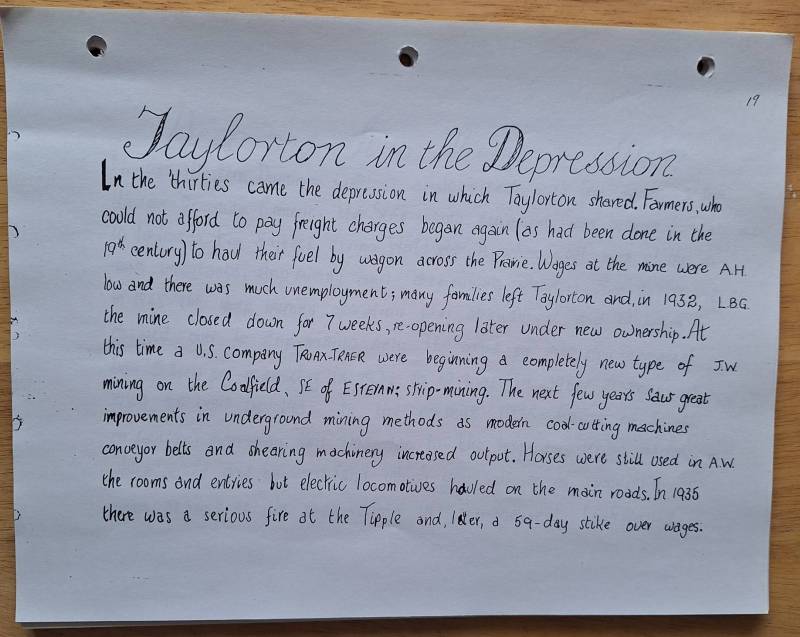 19
Taylorton in the Depression
In the 'thirties came the depression in which Taylorton shared. Farmers, who
could not afford to pay freight charges began again (as had been done in the
19th century) to haul their fuel by wagon across the Prairie. Wages at the mine were A.H.
low and there was much unemployment; many families left Taylorton and, in 1932, L.B.G.
the mine closed down for 7 weeks, re-opening later under new ownership. At
this time a U.S. company TRUAX-TRAER were beginning a completely new type of J.W.
mining on the Coalfield, SE of ESTEVAN; strip-mining. The next few years saw great
improvements in underground mining methods as modern coal-cutting machines
conveyor belts and shearing machinery increased output. Horses were still used in A.W.
the rooms and entries but electric locomotives hauled on the main roads. In 1935
there was a serious fire at the Tipple and, later, a 59-day stike over wages.